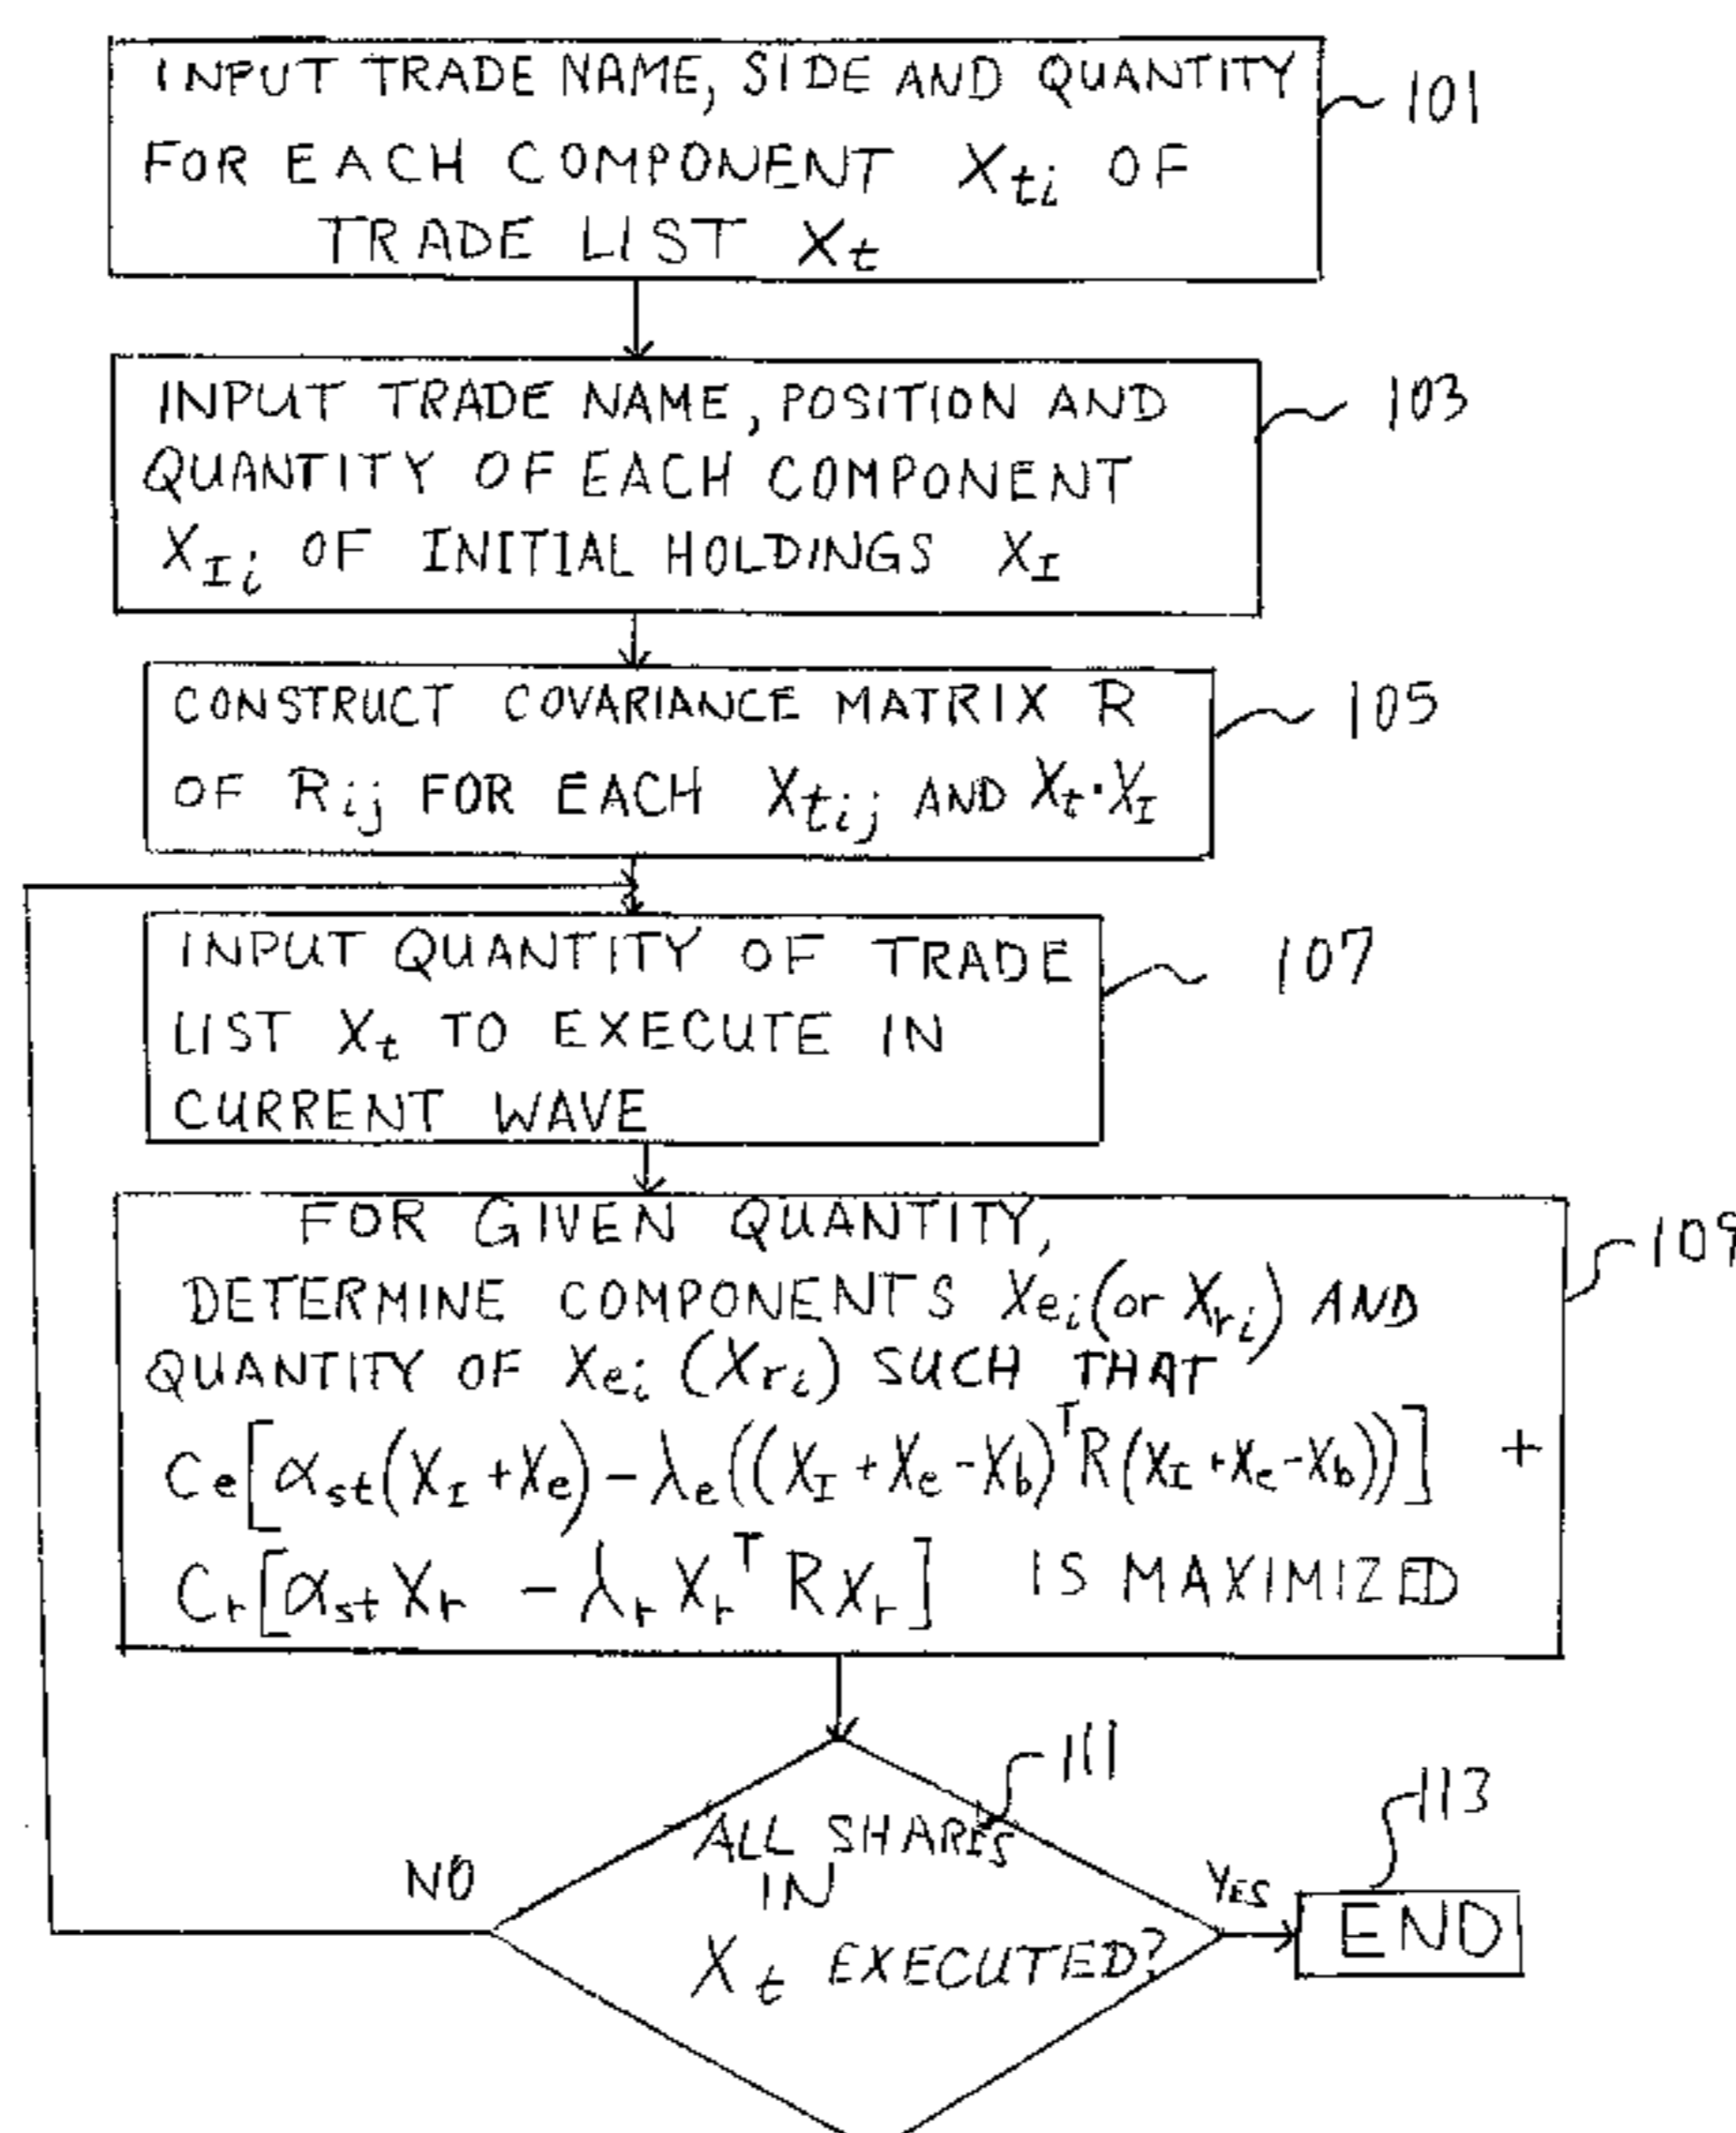 INPUT TRADE NAME, SIDE AND QUANTITY
101
FOR EACH COMPONENT Xti OF
TRADE LIST Xt
INPUT TRADE NAME, POSITION AND
103
QUANTITY OF EACH COMPONENT
XIi OF INITIAL HOLDINGS XI
CONSTRUCT COVARIANCE MATRIX R
105
OF Rij FOR EACH Xtij AND Xt·XI
INPUT QUANTITY OF TRADE
107
LIST Xt TO EXECUTE IN
CURRENT WAVE
FOR GIVEN QUANTITY,
109
DETERMINE COMPONENTS Xei (or Xri) AND
QUANTITY OF Xei (Xri) SUCH THAT
Ce[αst(XI+Xe)-λe((XI+Xe-Xb)ᵀR(XI+Xe-Xb))] +
Cr[αst Xr - λr Xrᵀ R Xr] IS MAXIMIZED
111
113
ALL SHARES
IN
NO
YES
END
Xt EXECUTED?